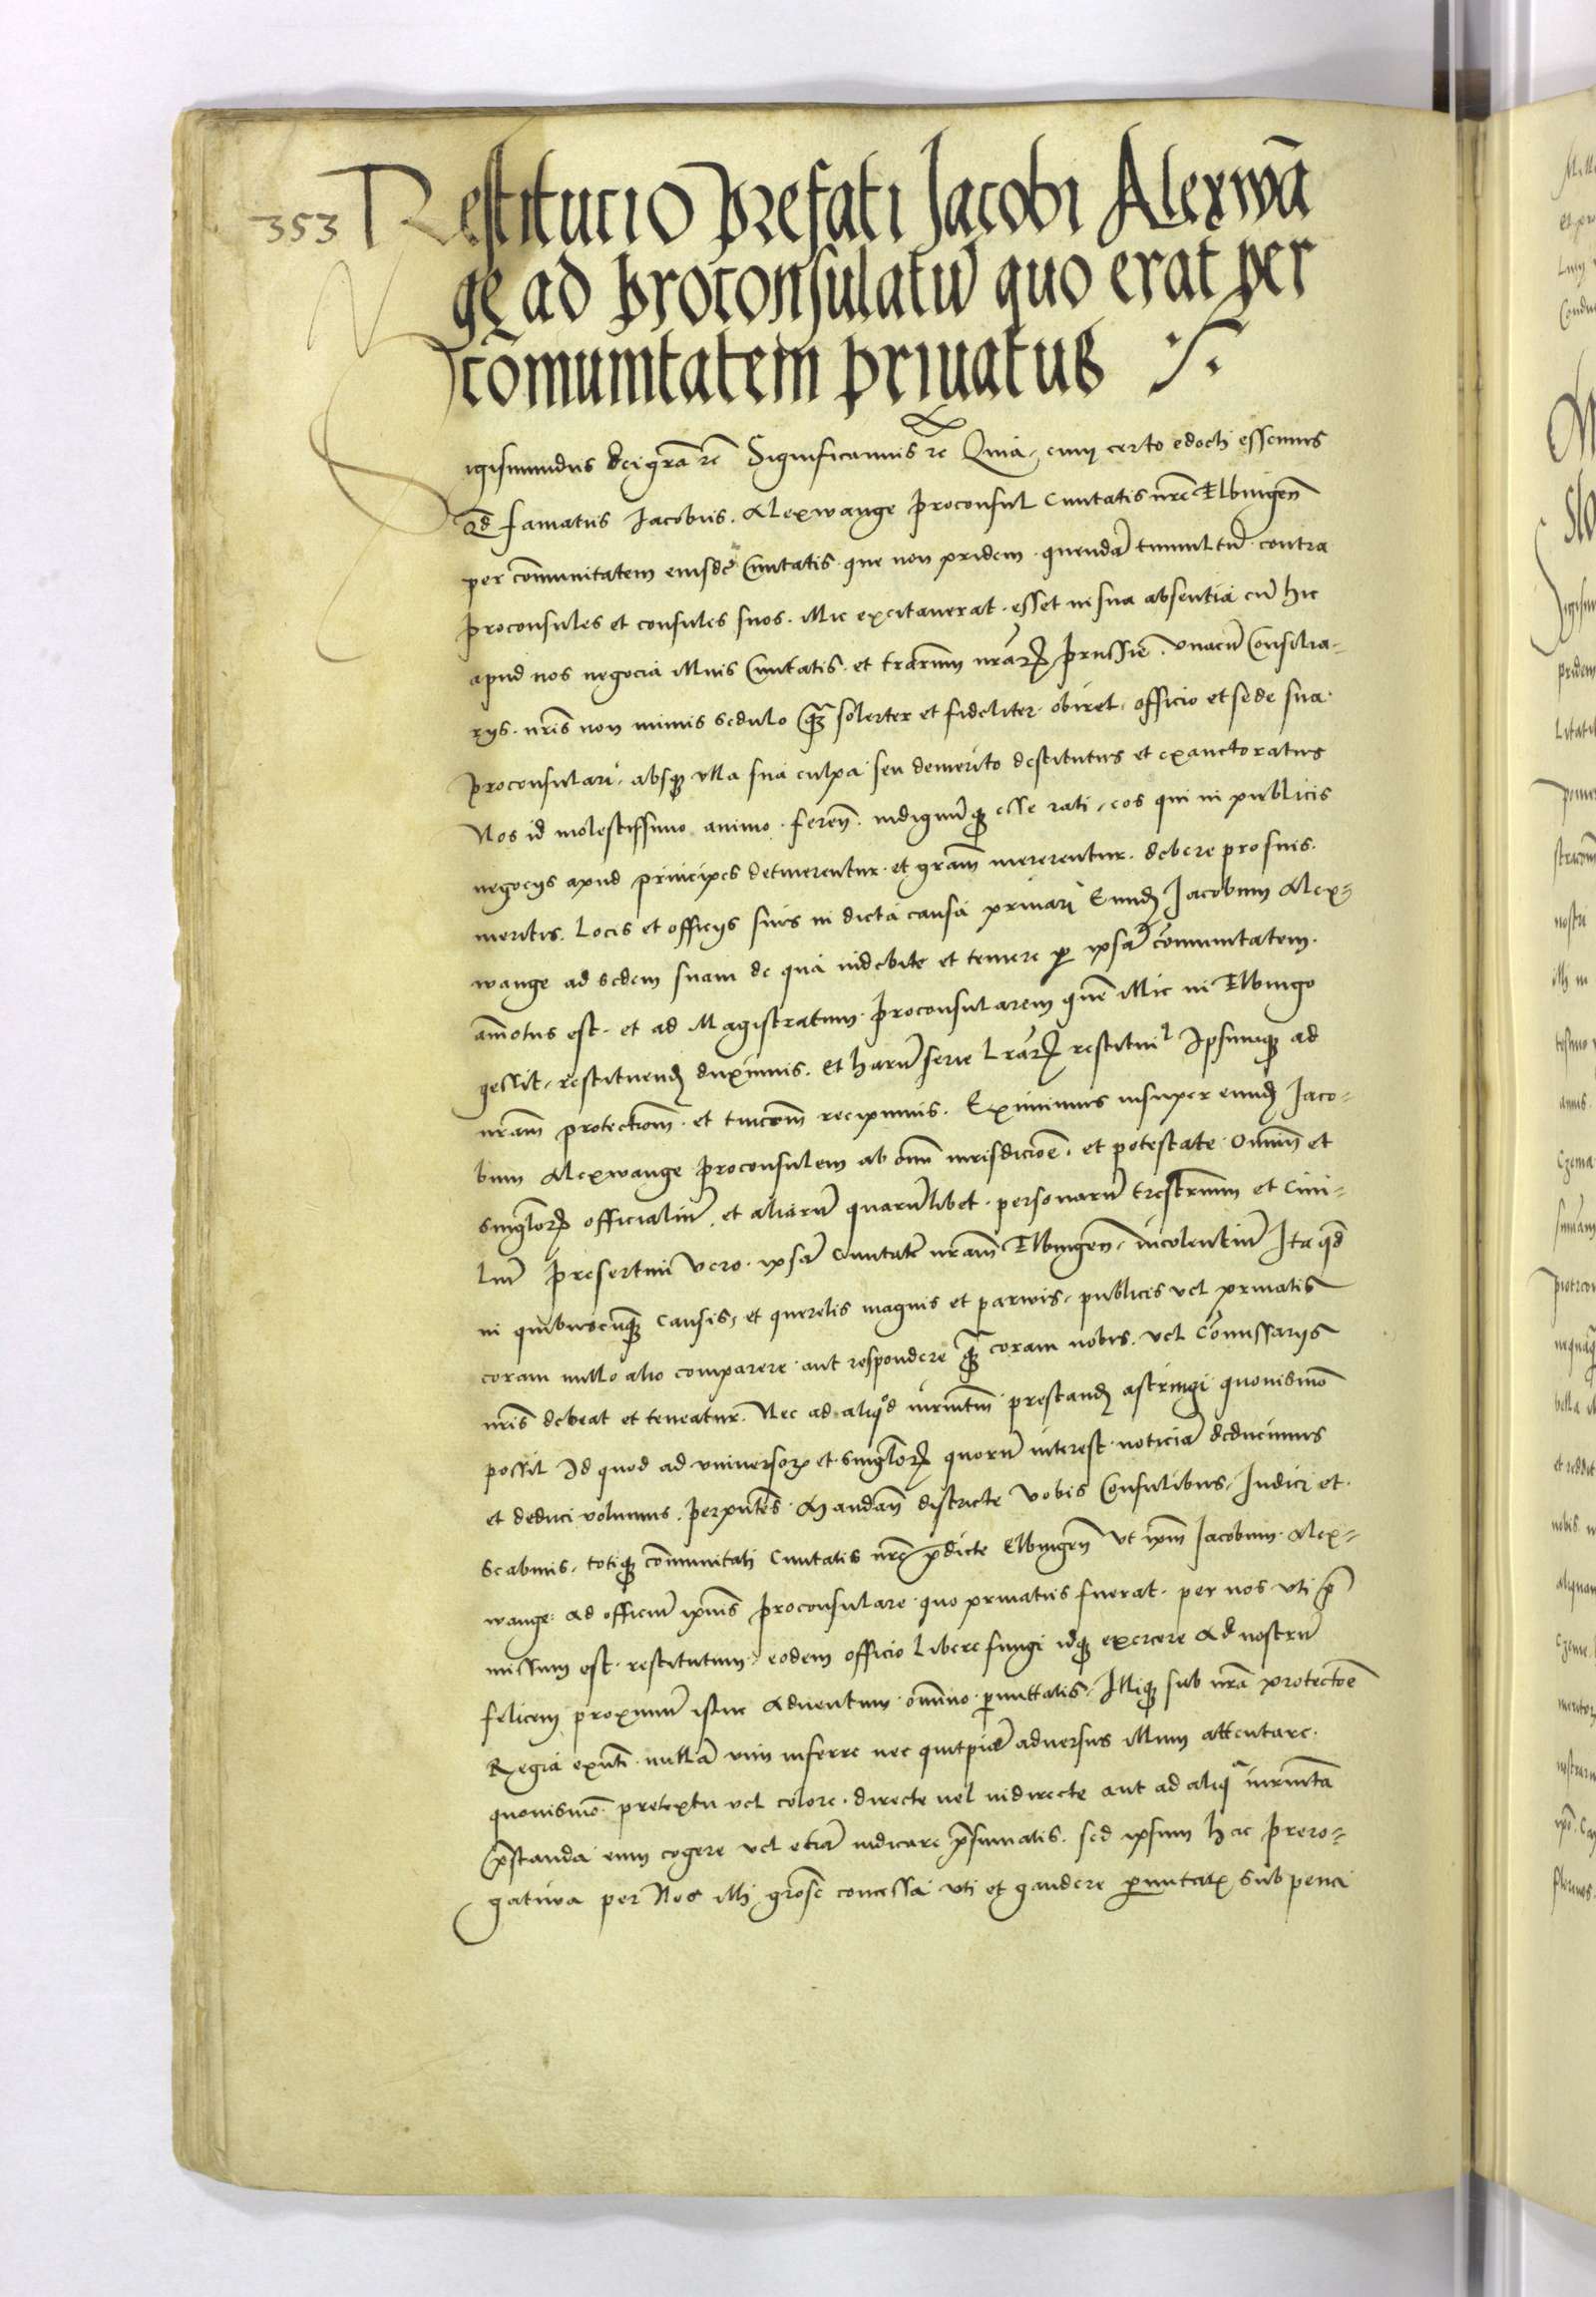 353 Restitucio prefati Jacobi Alexwã
gẽ ad proconsulatũ quo erat per
cõmunitatem priuatus ⁒
Sigismundus dei grã rc̃ Significamus rc̃ Quia, cum certo edocti essemus
qd̃ famatus Iacobus. Alexwange proconsul Ciuitatis nrẽ Elbingeñ
per com̃unitatem eiusdẽ Ciuitatis que non pridem quendã tumultũ contra
proconsules et consules suos. illic excitauerat. esset in sua absentia cũ hic
apud nos negocia illius Ciuitatis. et trarum nrãꝝ prussie. vnacũ Consilia-
rijs. nris̃ non minus sedulo qꝫ̃ solerter et fideliter obiret, officio et sede sua
proconsulari, absqꝫ vlla sua culpa seu demerito destitutus et exauctoratus
Nos id molestissimo animo ferem̃. indignũqꝫ esse rati, eos qui in publicis
negocijs apud principes detinerentur et gram̃ mererentur. debere pro suis
meritis. Locis et officijs suis in dicta causa priuari Eundꝫ Iacobum Alex-
wange ad sedem suam de qua indebite et temere ꝑ ipsã cõmunitatem
am̃otus est. et ad Magistratum proconsularem quẽ illic in Elbingo
gessit, restituendꝫ duximus. Et harũ serie Lrãꝝ restituiꝰ Ipsumqꝫ ad
nram̃ protectiom̃. et tuicom̃ recipimus. Eximimus insuper eundꝫ Iaco-
bum Alexwange proconsulem ab omñ iurisdicioẽ. et potestate omniũ et
singlorꝝ officialiũ, et aliarũ quarũlibet personarũ trestrium et Ciui-
liũ presertim vero ipsã Ciuitatẽ nram̃ Elbingeñ, incolentiũ Ita qd̃
in quibuscũqꝫ causis, et querelis magnis et parwis, publicis vel priuatis
coram nullo alio comparere aut respondere qꝫ̃ coram nobis. vel Com̃issarijs
nris̃ debeat et teneatur. Nec ad aliqd̃ iuramtm̃ prestandꝫ astringi quouismõ
possit Id quod ad vniuersorꝝ et singlorꝝ quorũ interest noticiã deducimus
et deduci volumus. per pñtes Mandañ districte vobis Consulibus, Iudici et
Scabinis, totiqꝫ com̃unitati Ciuitatis nrẽ p̃dicte Elbingeñ vt ipm̃ Iacobum Alex-
wange ad officiũ ipius̃ proconsulare quo priuatus fuerat per nos vti p̃
missum est restitutum, eodem officio Libere fungi idqꝫ exercere ad nostrũ
felicem proximũ istuc aduentum omnino ꝑmittatis. Illiqꝫ sub nrã protectoẽ
Regia exñti nullã vim inferre nec quitpiã aduersus illum attentare
quouismõ pretextu vel colore. directe vel indirecte aut ad aliqã iuramtã
p̃standa eum cogere vel etiã iudicare p̃sumatis. sed ipsum hac prero-
gatiua per Nos illi grose concessa vti et gaudere ꝑmittatꝭ sub pena